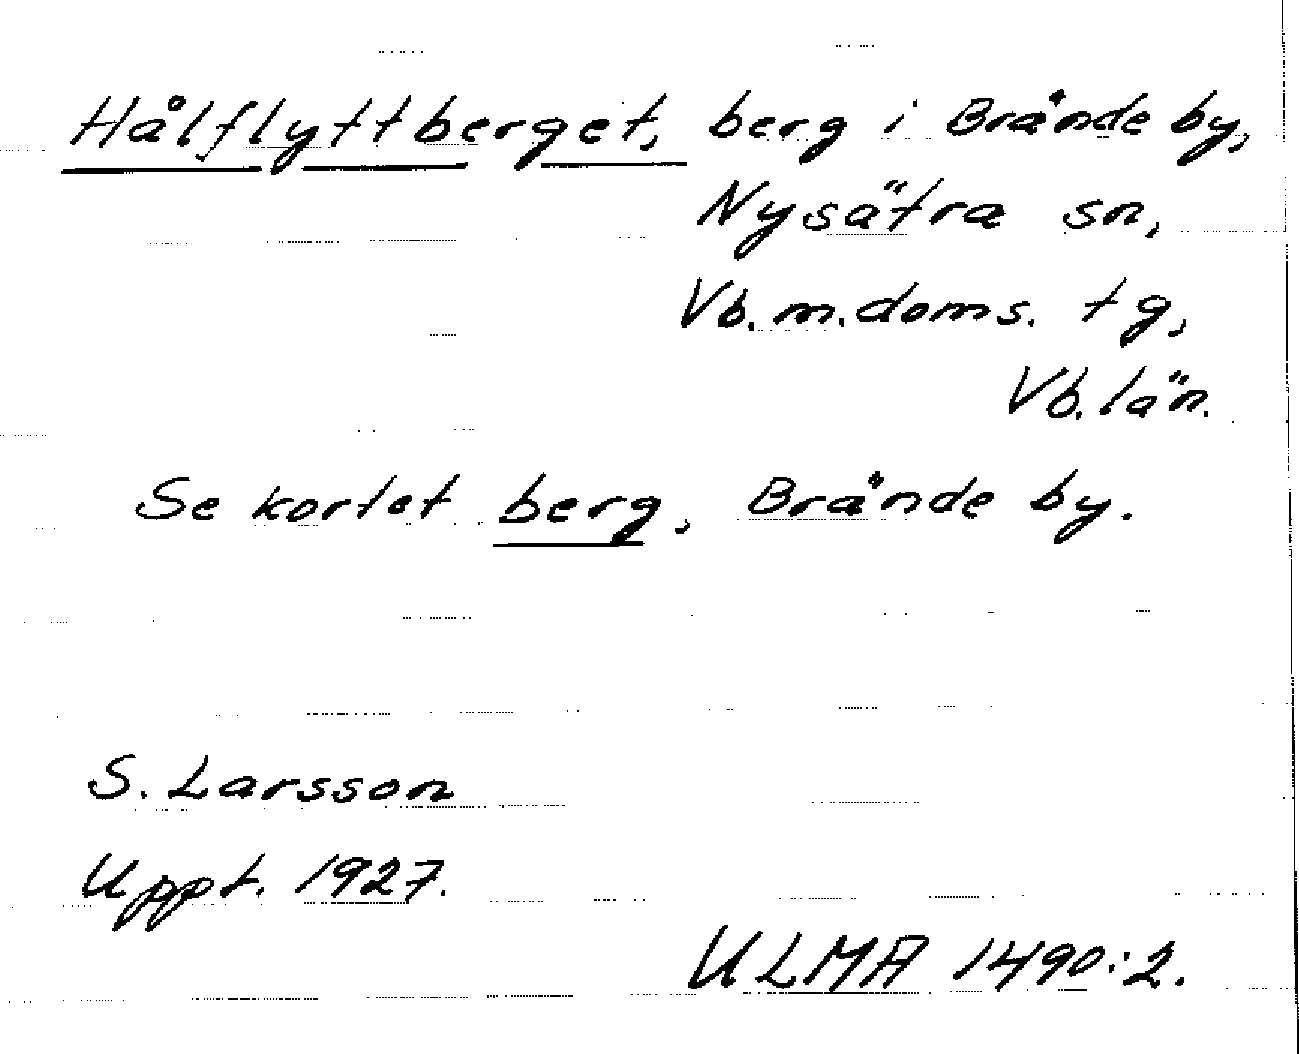 Hålflyttberget, berg i Brände by,
Nysätra sn,
Vb. m. doms. tg,
Vb. län.
Se kortet berg, Brände by.
S. Larsson
Uppt. 1927.
ULMA 1490:2.